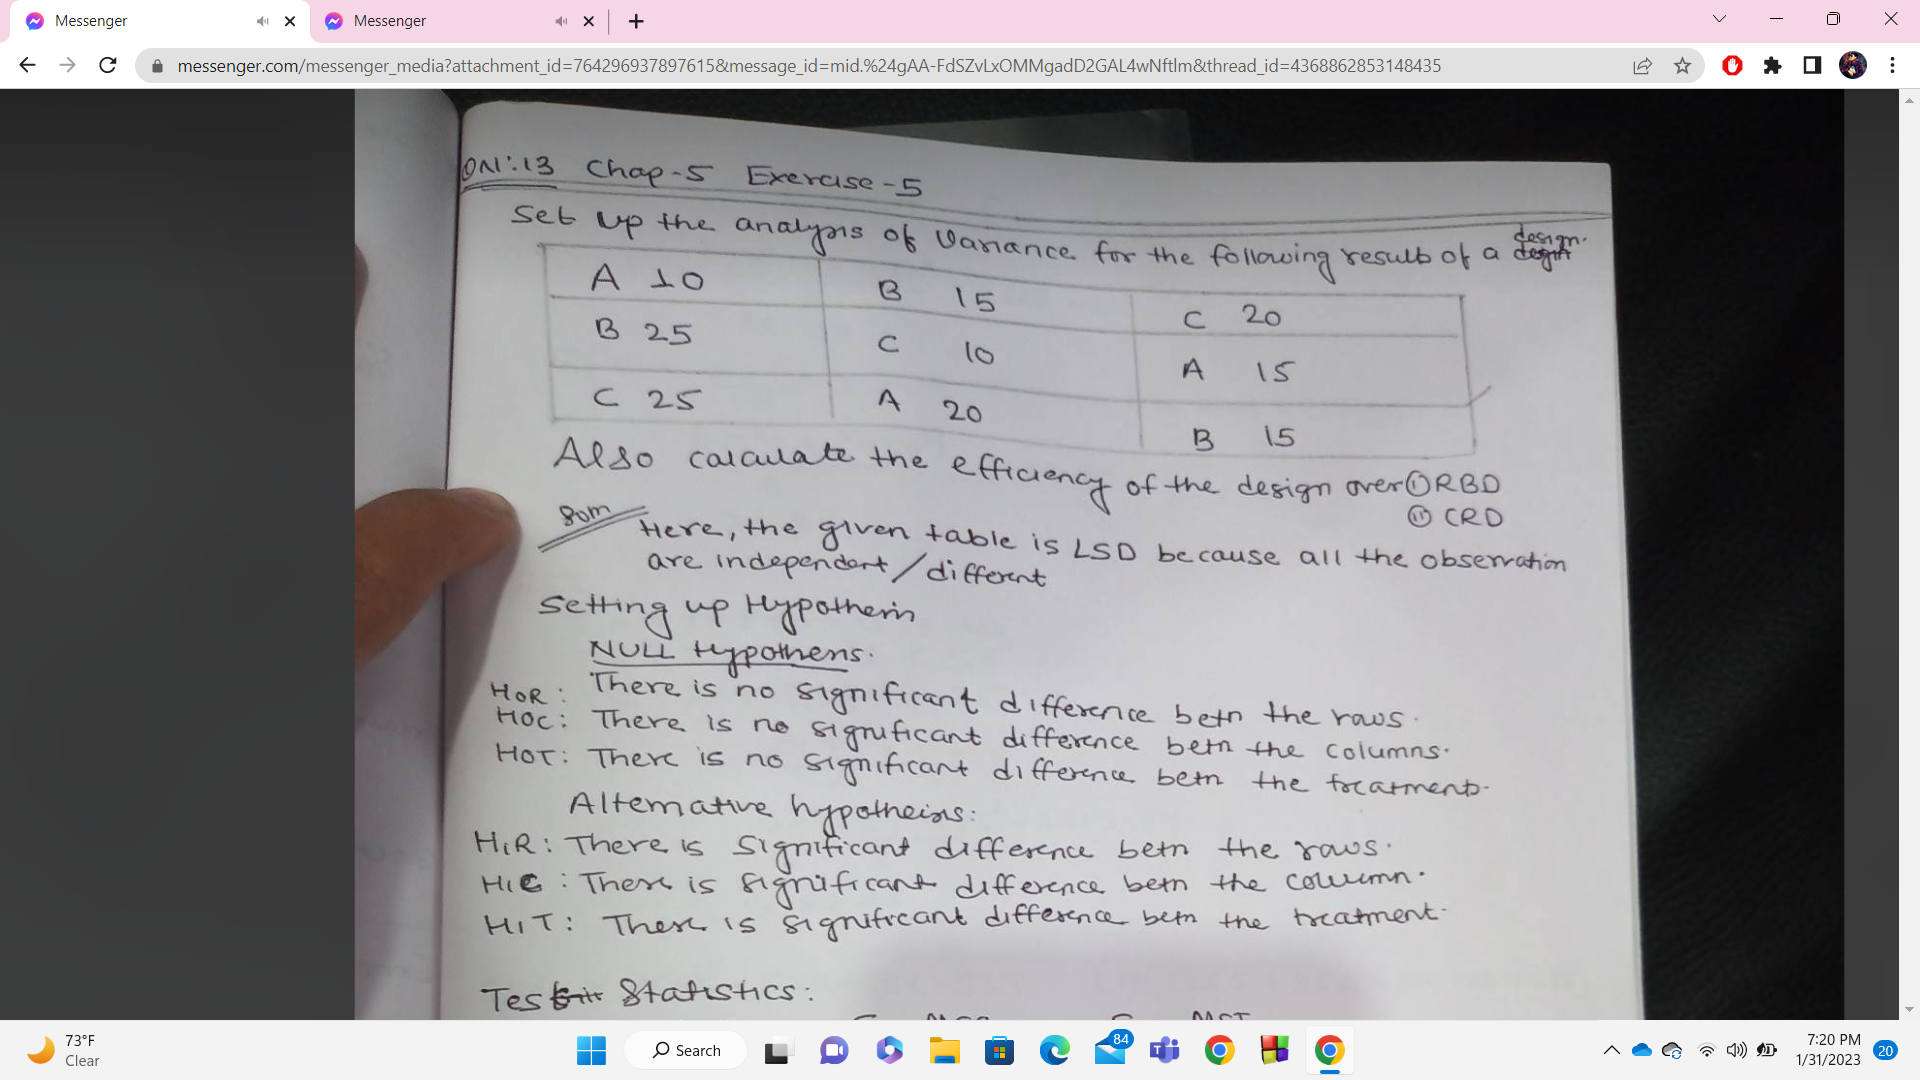 Messenger
Messenger
messenger.com/messenger_media?attachment_id=764296937897615&message_id=mid.%24gAA-FdSZvLxOMMgadD2GAL4wNftlm&thread_id=4368862853148435
QN:13 Chap-5 Exercise-5
Set up the analysis of Variance for the following result of a design.
A 10 B 15 C 20
B 25 C 10 A 15
C 25 A 20 B 15
Also calculate the efficiency of the design over (i) RBD
(ii) CRD
Here, the given table is LSD because all the observation
are independent/different
Setting up Hypothesis
NULL Hypothesis.
HOR: There is no significant difference betn the rows.
HOC: There is no significant difference betn the columns.
HOT: There is no significant difference betn the treatments.
Alternative hypothesis:
H1R: There is significant difference betn the rows.
H1C: There is significant difference betn the column.
H1T: There is significant difference betn the treatment.
Test Statistics:
73°F
Clear
Search
84
7:20 PM
1/31/2023
20